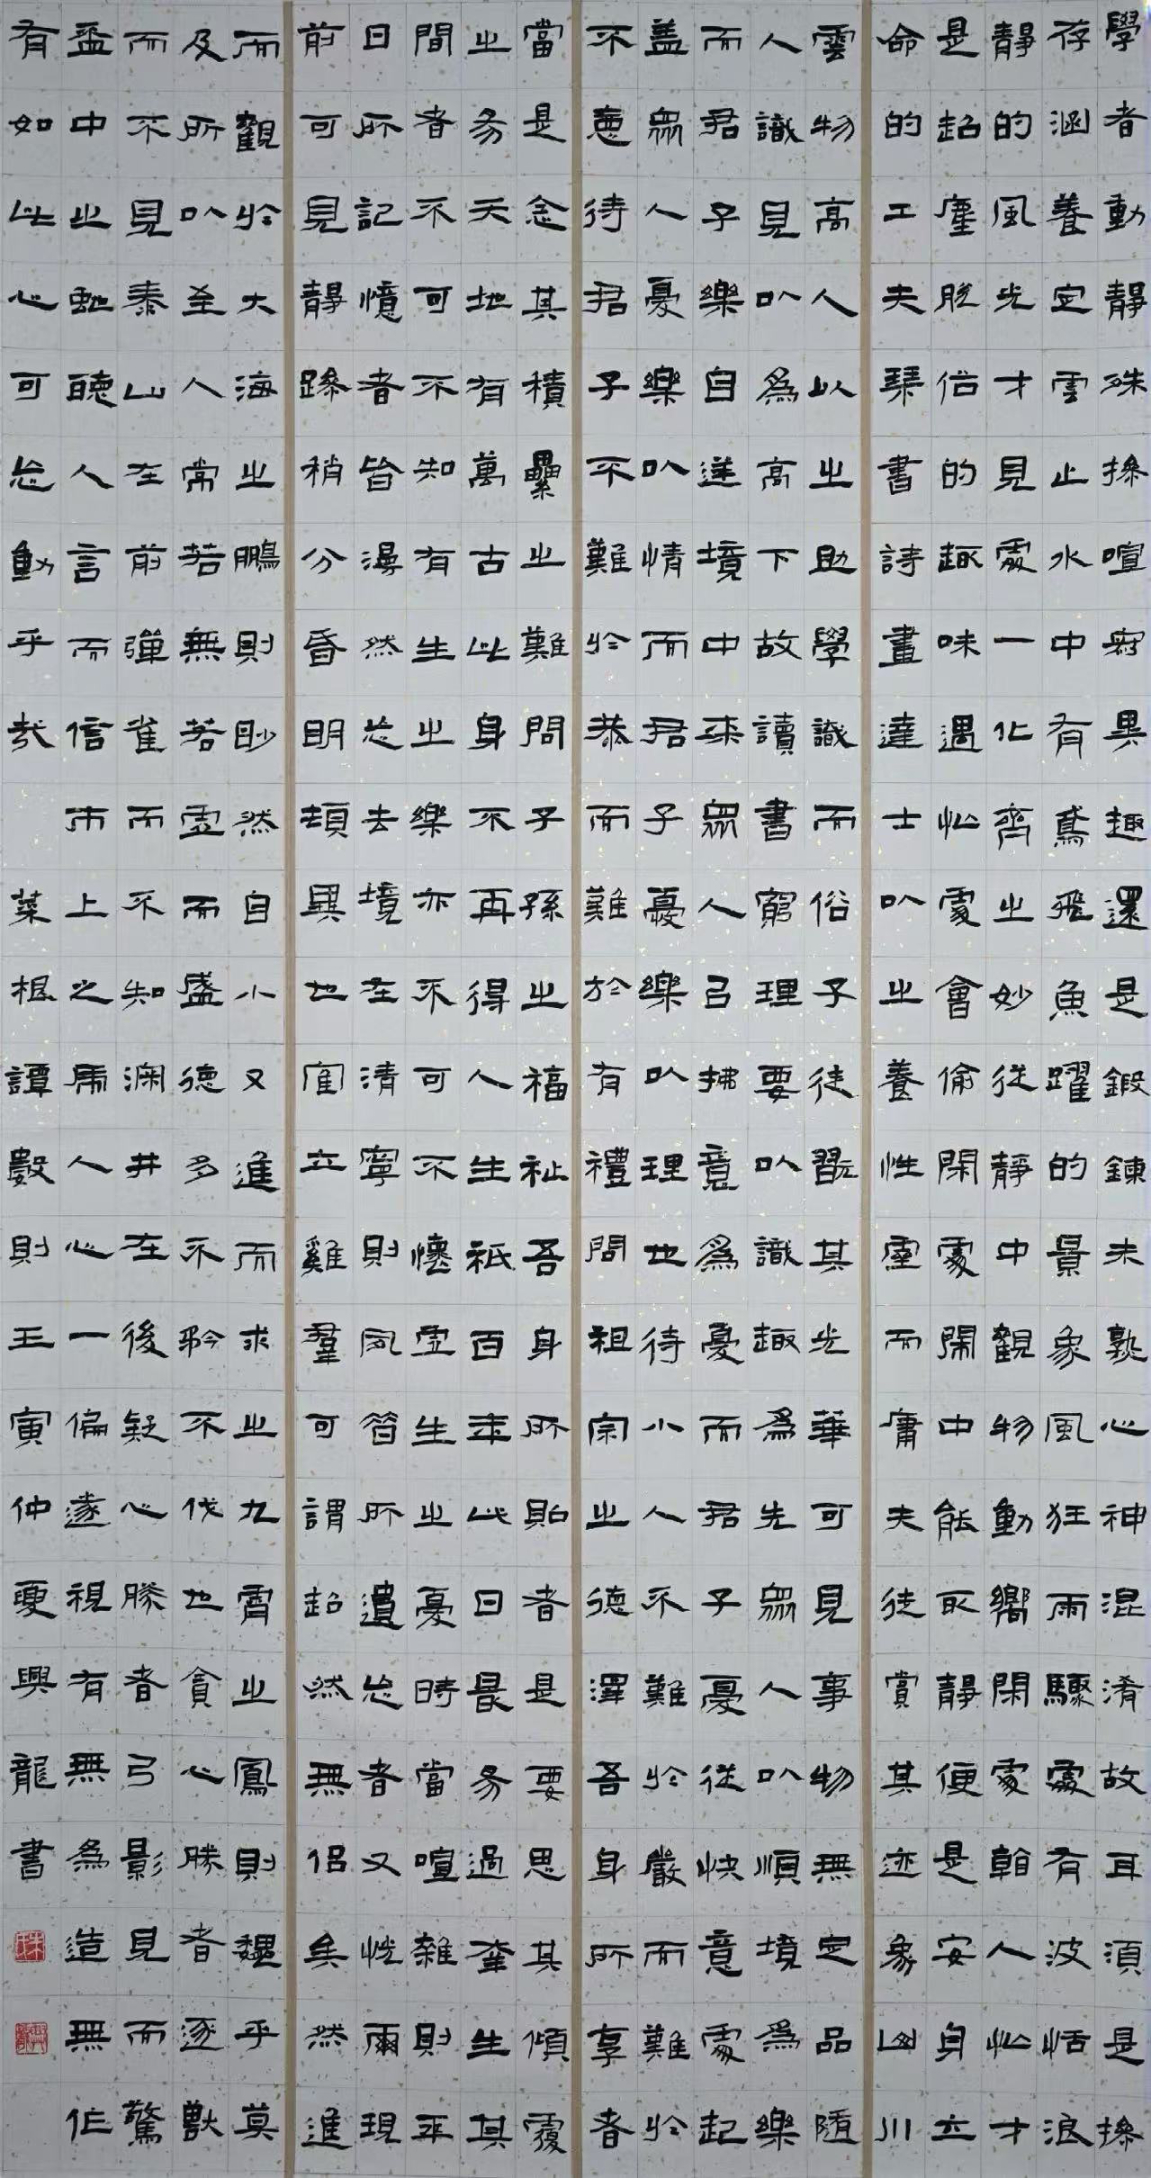 學者動靜殊操喧寂異趣還是鍛鍊未熟心神混淆故耳須是操
存涵養定雲止水中有鳶飛魚躍的景象風狂雨驟處有波恬浪
靜的風光才見處一化齊之妙從靜中觀物動嚮閑處翰人忙才
是超塵脫俗的趣味遇忙處會偷閑處閙中能取靜便是安身立
命的工夫琴書詩畫達士以之養性靈而庸夫徒賞其迹象山川
雲物高人以之助學識而俗子徒翫其光華可見事物無定品隨
人識見以爲高下故讀書窮理要以識趣爲先眾人以順境爲樂
而君子樂自逆境中來眾人以拂意爲憂而君子憂從快意處起
蓋眾人憂樂以情而君子憂樂以理也待小人不難於嚴而難於
不惡待君子不難於恭而難於有禮問祖宗之德澤吾身所享者
當是念其積纍之難問子孫之福祉吾身所貽者是要思其傾覆
之易天地有萬古此身不再得人生祇百年此日最易過幸生其
間者不可不知有生之樂亦不可不懷虛生之憂時當喧雜則平
日所記憶者皆漫然忘去境在清寧則夙昔所遺忘者又恍爾現
前可見靜躁稍分昏明頓異也寉立雞羣可謂超然無侶矣然進
而觀於大海之鵬則眇然自小又進而求之九霄之鳳則巍乎莫
及所以至人常若無若虛而盛德多不矜不伐也貪心勝者逐獸
而不見泰山在前彈雀而不知深井在後疑心勝者弓影見而驚
盃中之虵聽人言而信市上之虎人心一偏遂視有為無造無作
有如此心可忘動乎哉 菜根譚數則壬寅仲夏興龍書